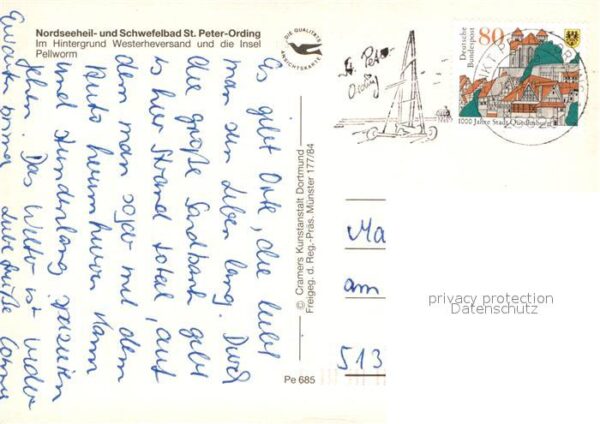 Nordseeheil- und Schwefelbad St. Peter-Ording
Im Hintergrund Westerheversand und die Insel
Pellworm
DIE QUALITÄTS
ANSICHTSKARTE
Es gibt Orte, die liebt
man sein Leben lang. Durch
die große Sandbank gibt
es hier Strand total, auf
dem man sogar mit dem
Auto herumfahren kann
und stundenlang spazieren
gehen. Das Wetter ist wieder
prima Liebe Grüße
© Cramers Kunstanstalt Dortmund
Freigeg. d. Reg.-Präs. Münster 177/84
Pe 685
St. Peter
Ording
80
Deutsche
Bundespost
1000 Jahre Stadt Quedlinburg
Ma
am
513
privacy protection
Datenschutz